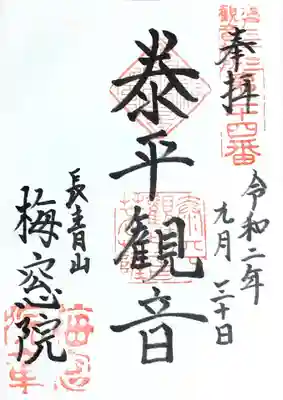 奉拝
令和二年
九月二十日
泰平観音
長青山
梅窓院